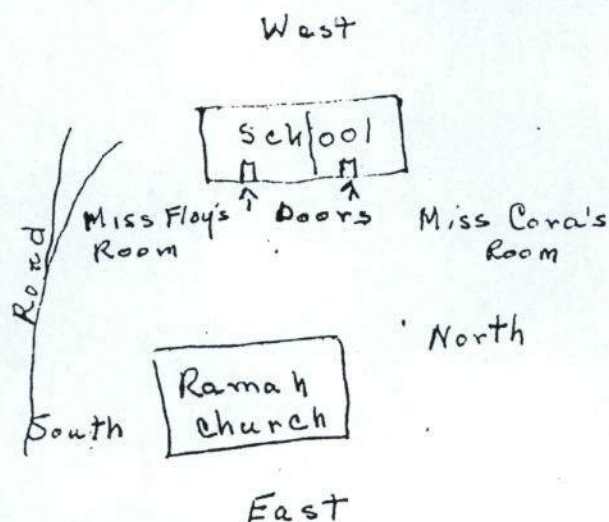 West
School
Miss Floy's Doors Miss Cora's
Room Room
Road
North
Ramah
church
South
East